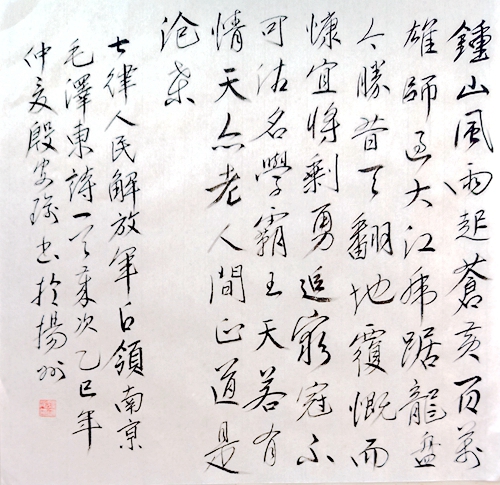 鍾山風雨起蒼黃百萬
雄師過大江虎踞龍盤
今勝昔天翻地覆慨而
慷宜將剩勇追窮寇不
可沽名學霸王天若有
情天亦老人間正道是
滄桑
七律人民解放軍占領南京
毛澤東詩一首歲次乙巳年
仲夏殷安书於揚州